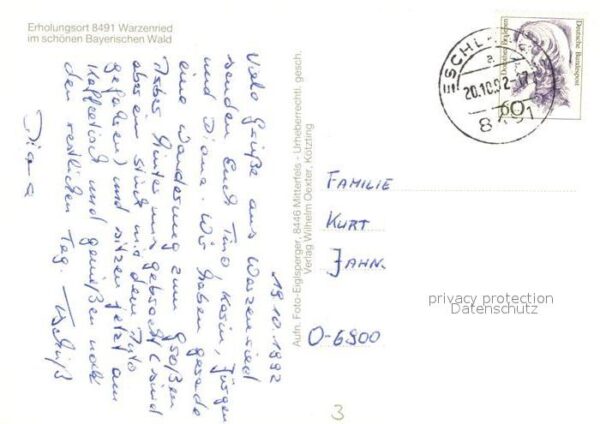 Erholungsort 8491 Warzenried
im schönen Bayerischen Wald
19.10.1992
Viele Grüße aus Warzenried
senden Euch Timo, Karin, Jürgen
und Diana. Wir haben gerade
eine Wanderung zum großen
hinter uns gebracht (sind
aber ein Stück mit dem Auto
gefahren) und sitzen jetzt am
Kaffeetisch und genießen noch
den restlichen Tag. Tschüß
Diana
Aufn. Foto-Eglsperger, 8446 Mitterfels - Urheberrechtl. gesch.
Verlag Wilhelm Oexter, Kötzting
Deutsche Bundespost
60
20.10.92-17
8491
FAMILIE
KURT
JAHN.
O-6900
privacy protection
Datenschutz
3